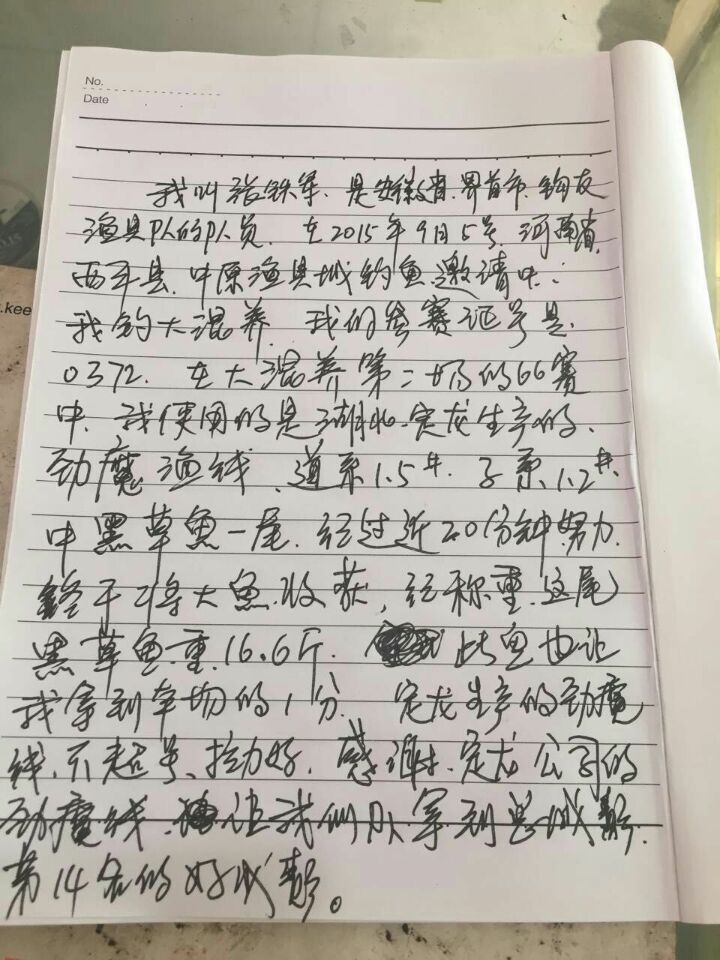 No.
Date
我叫张铁军.是安徽省.界首市.钩友
渔具队的队员.在2015年9月5号.河南省.
西平县.中原渔具城钓鱼.邀请中.
我钓大混养.我们参赛证号是.
0372.在大混养第二场的66赛
中.我使用的是湖北.定龙生产的.
劲魔渔线.道系1.5#.子系1.2#.
中黑草鱼一尾.经过近20分钟努力.
终于将大鱼.收获,经称重.这尾
黑草鱼.重.16.6斤.此鱼也让
我拿到本场的1分.定龙生产的劲魔
线.不起号、拉力好.感谢.定龙公司的
劲魔线.让我们队拿到总成绩.
第14名的好成绩。
.kee